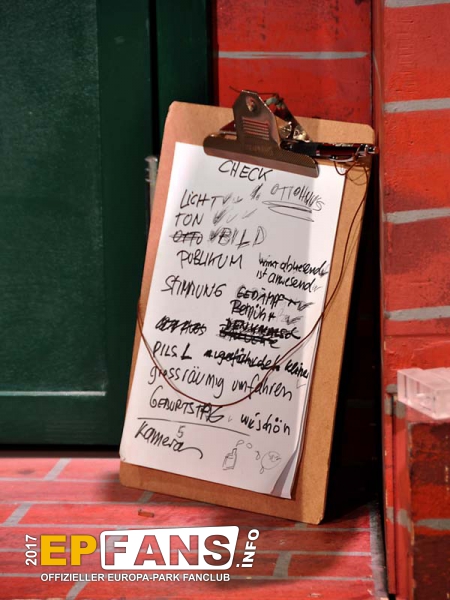 CHECK
LICHT OTTOHAUS
TON
OTTO BILD
PUBLIKUM wird abwesend
ist anwesend
STIMMUNG GEDÄMPFT
Bemüht
PILS L kleine
grossräumig umfahren
GEBURTSTAG wie schön
Kamera 5
2017 EPFANS.INFO
OFFIZIELLER EUROPA-PARK FANCLUB